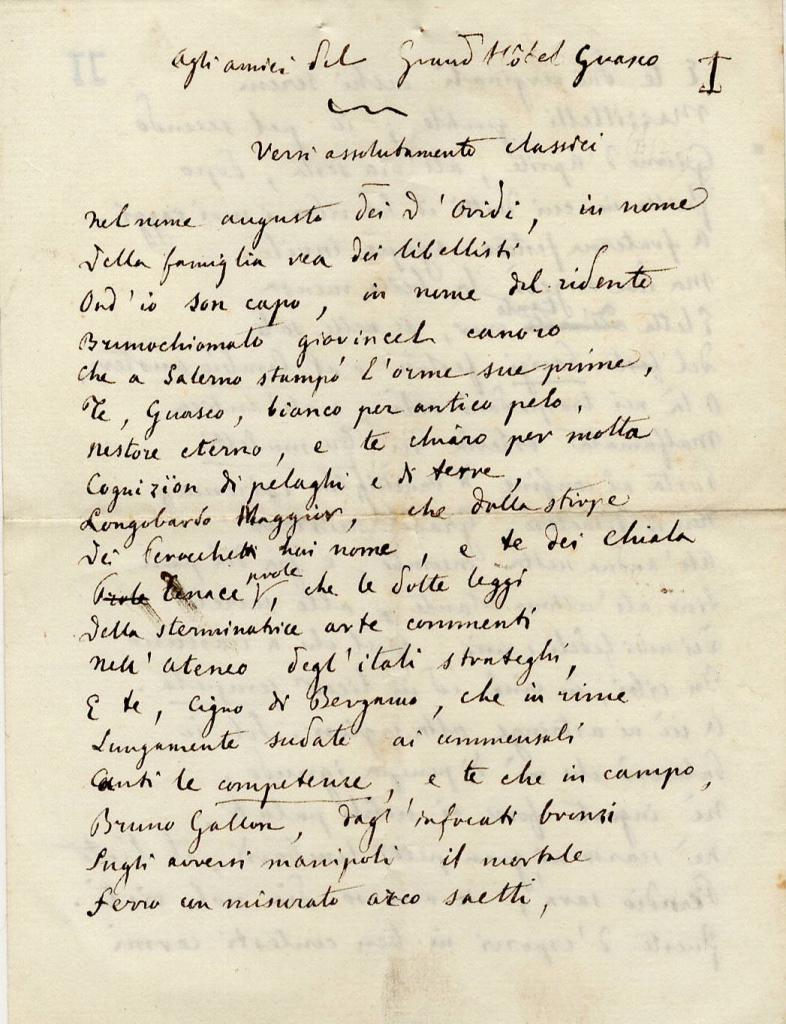 Agli amici del Grand Hôtel Guasco
I
Versi assolutamente classici
Nel nome augusto dei d'Ovidi, in nome
Della famiglia rea dei libellisti
Ond'io son capo, in nome del ridente
Brunochiomato giovincel canoro
Che a Salerno stampó l'orme sue prime,
Te, Guasco, bianco per antico pelo,
Nestore eterno, e te chiaro per molta
Cognizïon di pelaghi e di terre,
Longobardo Maggior, che dalla stirpe
Dei Ferocchetti hai nome, e te dei Chiala
Prole Tenace prole, che le dotte leggi
Della sterminatrice arte commenti
Nell'ateneo degl'itali strateghi,
E te, Cigno di Bergamo, che in rime
Lungamente sudate ai commensali
Canti le competenze, e te che in campo,
Bruno Gallon, dagl'infocati bronzi
Sugli avversi manipoli il mortale
Ferro con misurato arco saetti,